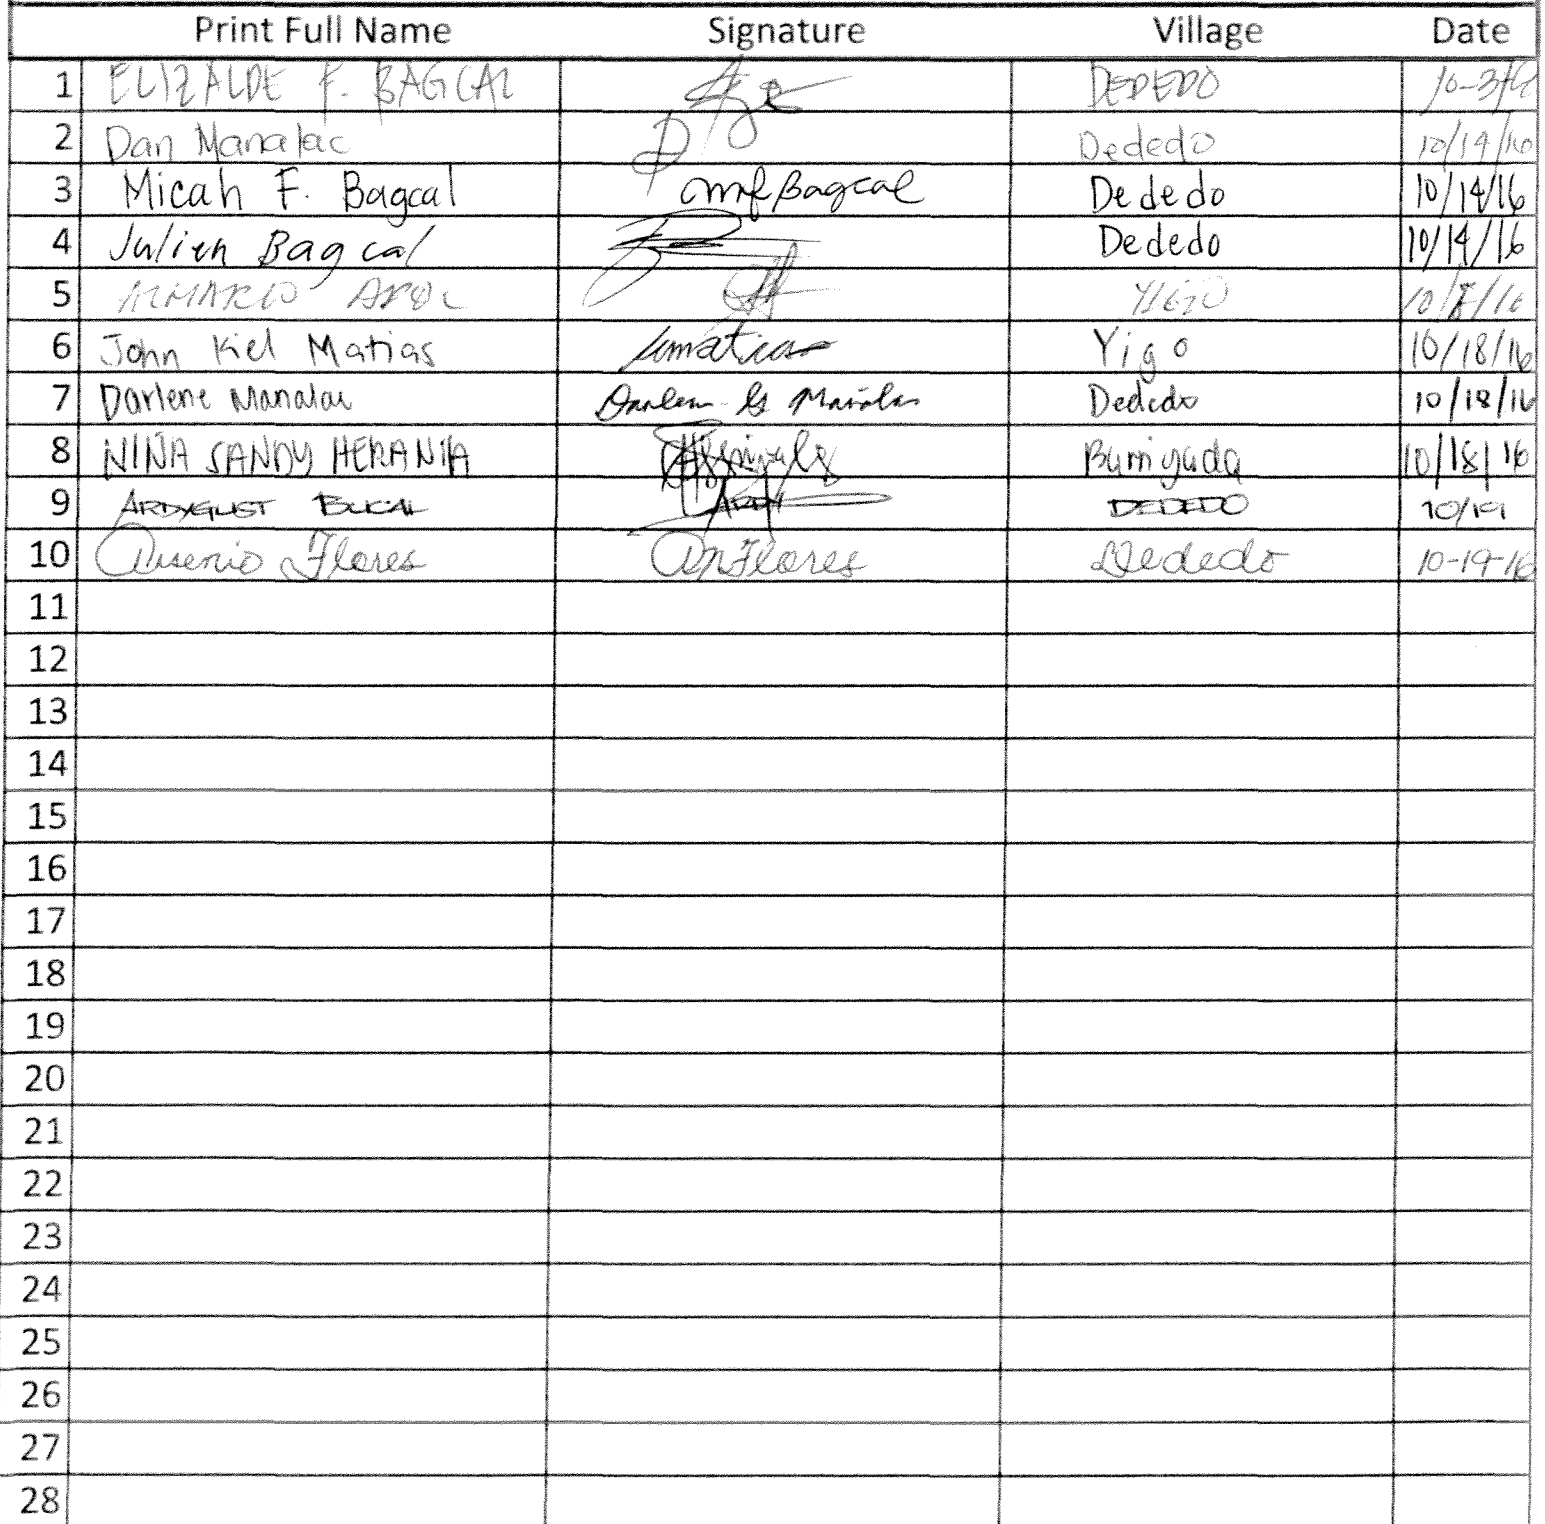 Print Full Name Signature Village Date
1 ELIZALDE F. BAGCAL DEDEDO
2 Dan Manalac Dededo 10/14/16
3 Micah F. Bagcal mfBagcal Dededo 10/14/16
4 Julien Bagcal Dededo 10/14/16
5 YIGO
6 John Kiel Matias Yigo 10/18/16
7 Darlene Manalac Dededo 10/18/16
8 NIÑA SANDY HERANIA Barrigada 10/18/16
9 BUCAL DEDEDO 10/19
10 Arsenio Flores Flores Dededo 10-19-16
11
12
13
14
15
16
17
18
19
20
21
22
23
24
25
26
27
28